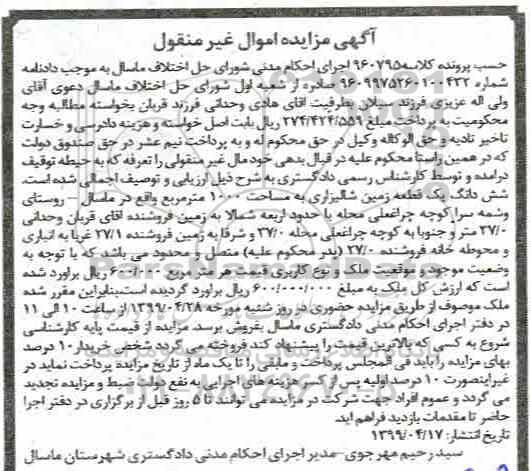 آگهی مزایده اموال غیر منقول
حسب پرونده کلاسه۹۶۰۷۹۵ اجرای احکام مدنی شورای حل اختلاف ماسال به موجب دادنامه
شماره ۹۶۰۹۹۷۵۲۶۰۱۰۰۴۳۲ صادره از شعبه اول شورای حل اختلاف ماسال دعوی آقای
ولی اله عزیزی فرزند سبلان بطرفیت اقای هادی وحدانی فرزند قربان بخواسته مطالبه وجه
محکومیت به پرداخت مبلغ ۲۷۴/۴۲۴/۵۵۹ ریال بابت اصل خواسته و هزینه دادرسی و خسارت
تاخیر تادیه و حق الوکاله وکیل در حق محکوم له و به پرداخت نیم عشر در حق صندوق دولت
که در همین راستا محکوم علیه در قبال بدهی خود مال غیر منقولی را تعرفه که به حیطه توقیف
درامده و توسط کارشناس رسمی دادگستری به شرح ذیل ارزیابی و توصیف اجمالی شده است.
شش دانگ یک قطعه زمین شالیزاری به مساحت ۱۰۰۰ مترمربع واقع در ماسال – روستای
وشمه سرا کوچه چراغعلی محله با حدود اربعه شمالا به زمین فروشنده اقای قربان وحدانی
۲۷/۰ متر و جنوبا به کوچه چراغعلی محله ۳۷/۰ و شرقا به زمین فروشنده ۲۷/۱ غربا به انباری
و محوطه خانه فروشنده ۲۷/۰ (پدر محکوم علیه) متصل و محدود می باشد که با توجه به
وضعیت موجود و موقعیت ملک و نوع کاربری قیمت هر متر مربع ۶۰۰/۰۰۰ ریال براورد شده
است که ارزش کل ملک به مبلغ ۶۰۰/۰۰۰/۰۰۰ ریال براورد گردیده است بنابراین مقرر شده
ملک موصوف از طریق مزایده حضوری در روز شنبه مورخه ۱۳۹۹/۰۴/۲۸ از ساعت ۱۰ الی ۱۱
در دفتر اجرای احکام مدنی دادگستری ماسال بفروش برسد. مزایده از قیمت پایه کارشناسی
شروع به کسی که بالاترین قیمت را پیشنهاد کند فروخته می گردد شخص خریدار ۱۰ درصد
بهای مزایده را باید فی المجلس پرداخت و مابقی را تا یک ماه از تاریخ مزایده پرداخت نماید در
غیراینصورت ۱۰ درصد اولیه پس از کسر هزینه های اجرایی به نفع دولت ضبط و مزایده تجدید
می گردد و عموم افراد جهت شرکت در مزایده می توانند تا ۵ روز قبل از برگزاری در دفتر اجرا
حاضر تا مقدمات بازدید فراهم اید.
تاریخ انتشار: ۱۳۹۹/۰۴/۱۷
سیدرحیم مهرجوی – مدیر اجرای احکام مدنی دادگستری شهرستان ماسال